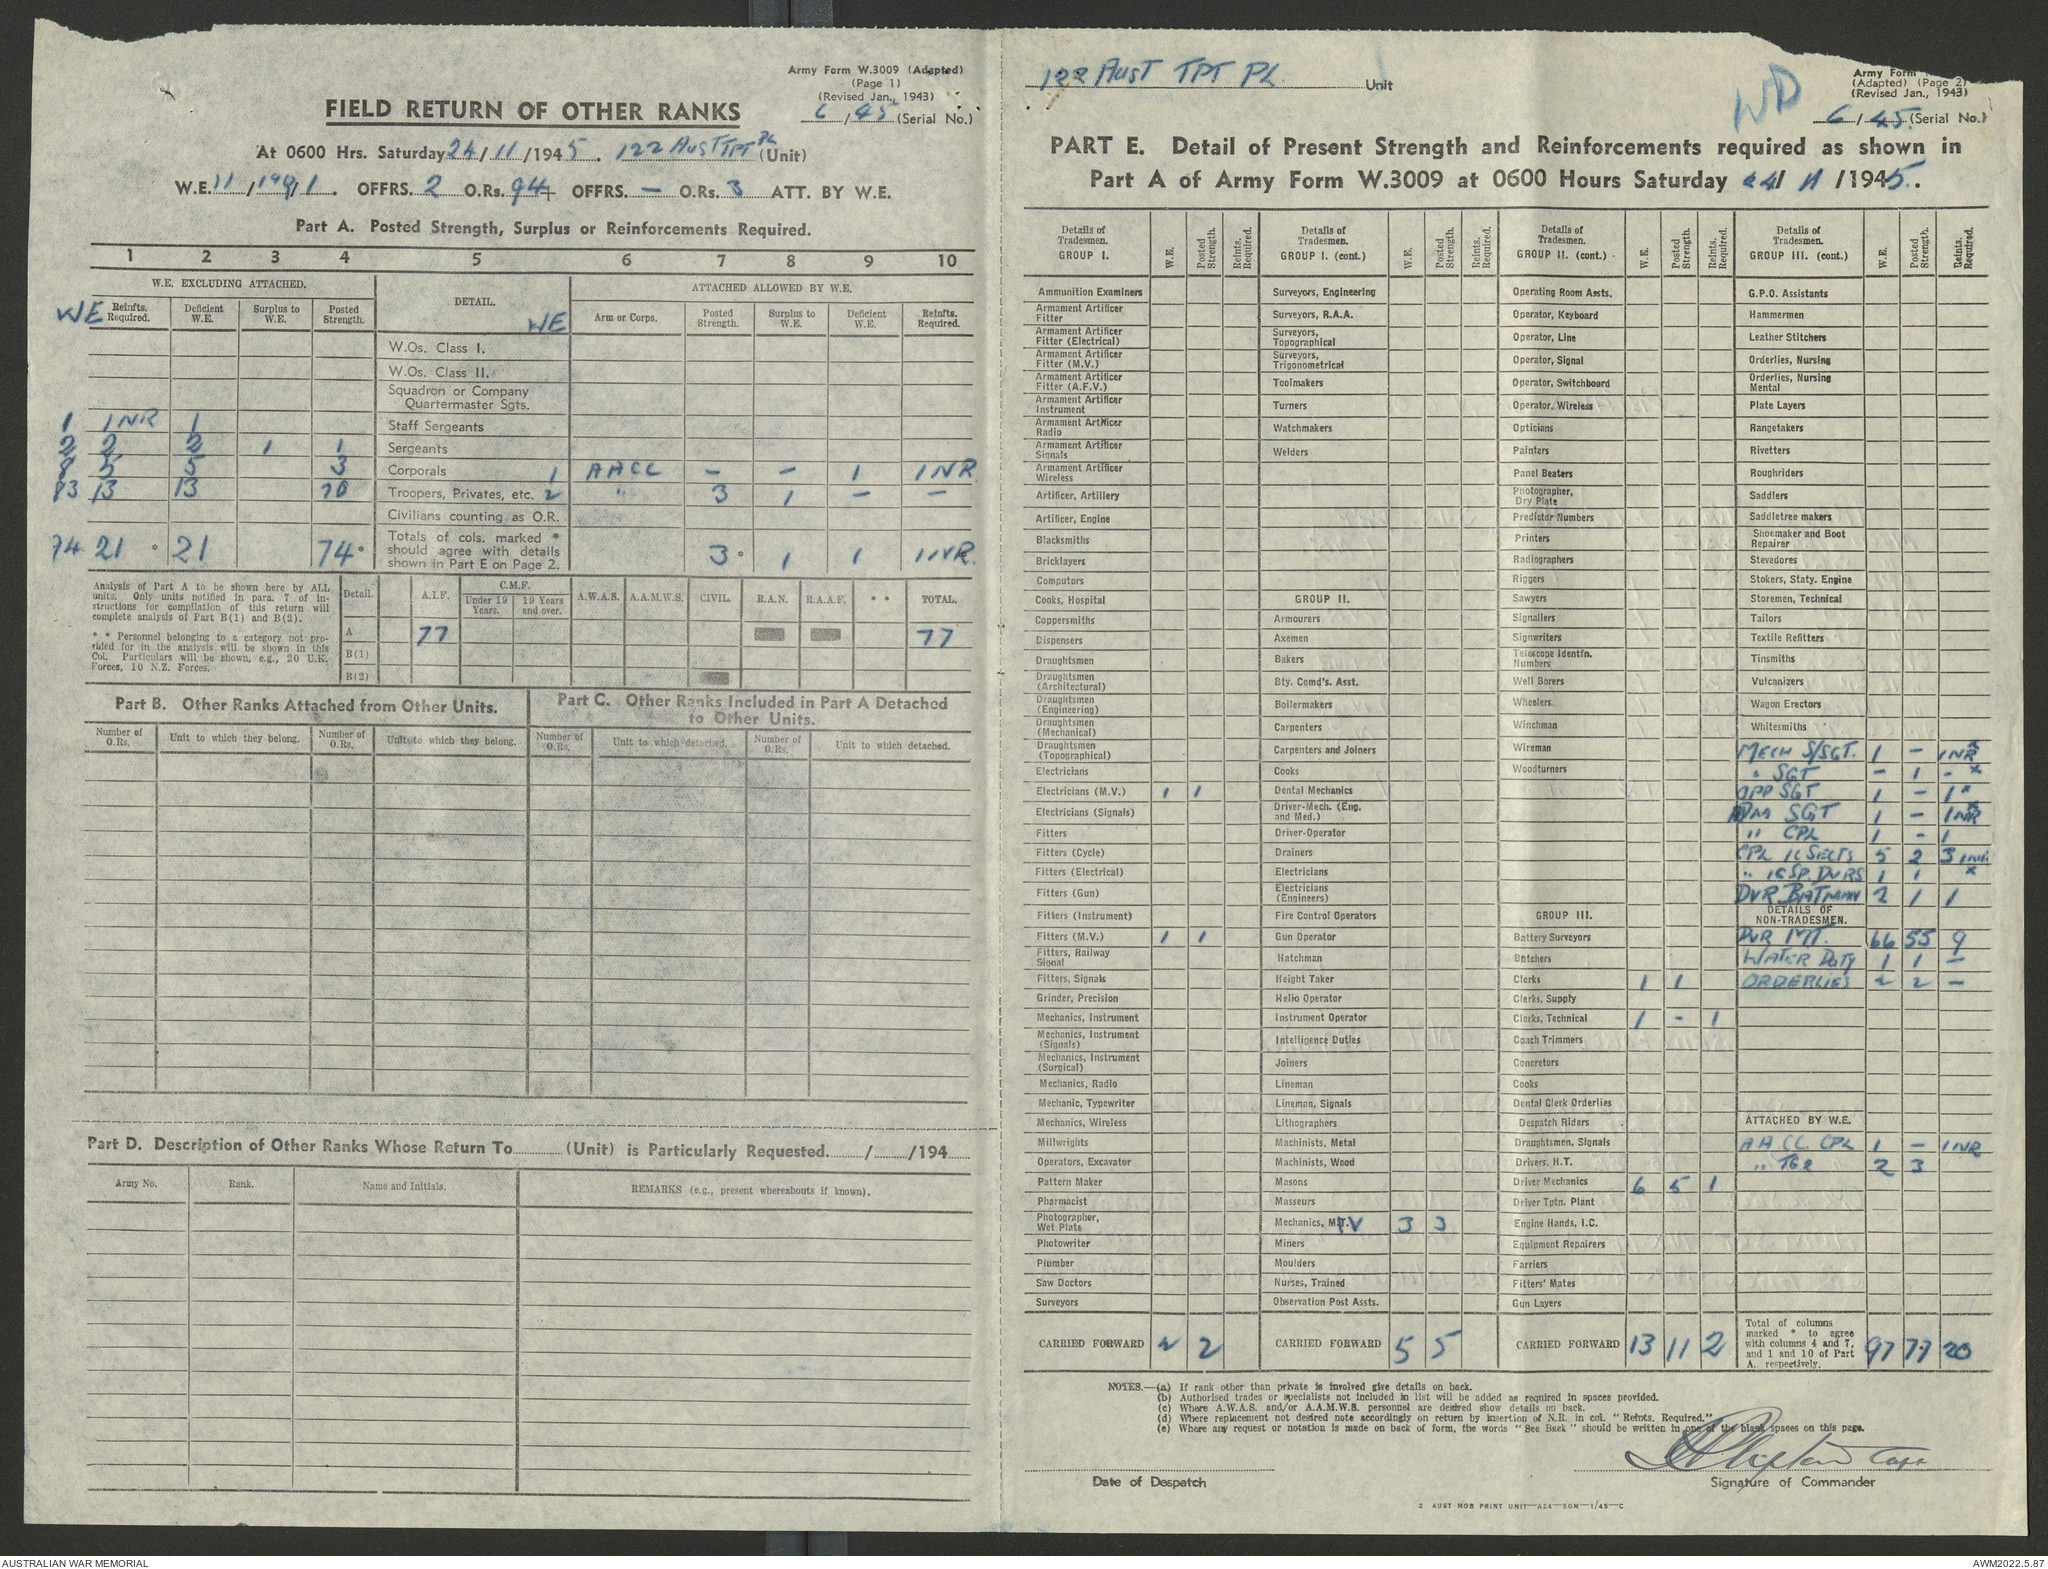 Army Form W.3009 (Adapted)
(Page 1)
(Revised Jan., 1943)
FIELD RETURN OF OTHER RANKS
6/45 (Serial No.)
At 0600 Hrs. Saturday 24/11/1945. 122 Aust TPT PL (Unit)
W.E. 11/199/1. OFFRS. 2 O.Rs. 94+ OFFRS. — O.Rs. 3 ATT. BY W.E.
Part A. Posted Strength, Surplus or Reinforcements Required.
1 2 3 4 5 6 7 8 9 10
W.E. EXCLUDING ATTACHED. DETAIL. ATTACHED ALLOWED BY W.E.
WE Reinfts. Required. Deficient W.E. Surplus to W.E. Posted Strength. WE Arm or Corps. Posted Strength. Surplus to W.E. Deficient W.E. Reinfts. Required.
W.Os. Class I.
W.Os. Class II.
Squadron or Company Quartermaster Sgts.
1 1 NR 1 Staff Sergeants
2 2 2 1 1 Sergeants
8 5 5 3 Corporals 1 AACC - - 1 1 NR
83 13 13 70 Troopers, Privates, etc. 2 " 3 1 - -
Civilians counting as O.R.
74 21 * 21 74 * Totals of cols. marked * should agree with details shown in Part E on Page 2. 3 * 1 1 1 NR.
Analysis of Part A to be shown here by ALL
units. Only units notified in para. 7 of in-
structions for compilation of this return will
complete analysis of Part B(1) and B(2).
* * Personnel belonging to a category not pro-
vided for in the analysis will be shown in this
Col. Particulars will be shown, e.g., 20 U.K.
Forces, 10 N.Z. Forces.
Detail. A.I.F. C.M.F. Under 19 Years. 19 Years and over. A.W.A.S. A.A.M.W.S. CIVIL. R.A.N. R.A.A.F. * * TOTAL.
A 77 77
B(1)
B(2)
Part B. Other Ranks Attached from Other Units.
Number of O.Rs. Unit to which they belong. Number of O.Rs. Unit to which they belong.
Part C. Other Ranks Included in Part A Detached
to Other Units.
Number of O.Rs. Unit to which detached. Number of O.Rs. Unit to which detached.
Part D. Description of Other Ranks Whose Return To (Unit) is Particularly Requested. / /194
Army No. Rank. Name and Initials. REMARKS (e.g., present whereabouts if known).
122 AUST TPT PL. Unit
WD
Army Form
(Adapted) (Page 2)
(Revised Jan., 1943)
6/45. (Serial No.)
PART E. Detail of Present Strength and Reinforcements required as shown in
Part A of Army Form W.3009 at 0600 Hours Saturday 24/11/1945.
Details of Tradesmen. GROUP I. W.E. Posted Strength. Reints. Required.
Ammunition Examiners
Armament Artificer Fitter
Armament Artificer Fitter (Electrical)
Armament Artificer Fitter (M.V.)
Armament Artificer Fitter (A.F.V.)
Armament Artificer Instrument
Armament Artificer Radio
Armament Artificer Signals
Armament Artificer Wireless
Artificer, Artillery
Artificer, Engine
Blacksmiths
Bricklayers
Computors
Cooks, Hospital
Coppersmiths
Dispensers
Draughtsmen
Draughtsmen (Architectural)
Draughtsmen (Engineering)
Draughtsmen (Mechanical)
Draughtsmen (Topographical)
Electricians
Electricians (M.V.) 1 1
Electricians (Signals)
Fitters
Fitters (Cycle)
Fitters (Electrical)
Fitters (Gun)
Fitters (Instrument)
Fitters (M.V.) 1 1
Fitters, Railway Signal
Fitters, Signals
Grinder, Precision
Mechanics, Instrument
Mechanics, Instrument (Signals)
Mechanics, Instrument (Surgical)
Mechanics, Radio
Mechanic, Typewriter
Mechanics, Wireless
Millwrights
Operators, Excavator
Pattern Maker
Pharmacist
Photographer, Wet Plate
Photowriter
Plumber
Saw Doctors
Surveyors
CARRIED FORWARD 2 2
Details of Tradesmen. GROUP I. (cont.) W.E. Posted Strength. Reints. Required.
Surveyors, Engineering
Surveyors, R.A.A.
Surveyors, Topographical
Surveyors, Trigonometrical
Toolmakers
Turners
Watchmakers
Welders
GROUP II.
Armourers
Axemen
Bakers
Bty. Comd's. Asst.
Boilermakers
Carpenters
Carpenters and Joiners
Cooks
Dental Mechanics
Driver-Mech. (Eng. and Med.)
Driver-Operator
Drainers
Electricians
Electricians (Engineers)
Fire Control Operators
Gun Operator
Hatchman
Height Taker
Helio Operator
Instrument Operator
Intelligence Duties
Joiners
Lineman
Lineman, Signals
Lithographers
Machinists, Metal
Machinists, Wood
Masons
Masseurs
Mechanics, M.V 3 3
Miners
Moulders
Nurses, Trained
Observation Post Assts.
CARRIED FORWARD 5 5
Details of Tradesmen. GROUP II. (cont.) W.E. Posted Strength. Reints. Required.
Operating Room Assts.
Operator, Keyboard
Operator, Line
Operator, Signal
Operator, Switchboard
Operator, Wireless
Opticians
Painters
Panel Beaters
Photographer, Dry Plate
Predictor Numbers
Printers
Radiographers
Riggers
Sawyers
Signallers
Signwriters
Telescope Identfn. Numbers
Well Borers
Wheelers
Winchman
Wireman
Woodturners
GROUP III.
Battery Surveyors
Butchers
Clerks 1 1
Clerks, Supply
Clerks, Technical 1 - 1
Coach Trimmers
Concretors
Cooks
Dental Clerk Orderlies
Despatch Riders
Draughtsmen, Signals
Drivers, H.T.
Driver Mechanics 6 5 1
Driver Tptn. Plant
Engine Hands, I.C.
Equipment Repairers
Farriers
Fitters' Mates
Gun Layers
CARRIED FORWARD 13 11 2
Details of Tradesmen. GROUP III. (cont.) W.E. Posted Strength. Reints. Required.
G.P.O. Assistants
Hammermen
Leather Stitchers
Orderlies, Nursing
Orderlies, Nursing Mental
Plate Layers
Rangetakers
Rivetters
Roughriders
Saddlers
Saddletree makers
Shoemaker and Boot Repairer
Stevedores
Stokers, Staty. Engine
Storemen, Technical
Tailors
Textile Refitters
Tinsmiths
Vulcanizers
Wagon Erectors
Whitesmiths
MECH S/SGT. 1 - 1NR *
" SGT - 1 - *
OPP SGT 1 - 1 *
SGT 1 - 1NR *
" CPL 1 - 1
CPL IC SECTS 5 2 3 1NR
" IC SP. DVRS 1 1 *
DVR BATMAN 2 1 1
DETAILS OF NON-TRADESMEN.
DVR MT. 66 55 9
WATER DUTY 1 1 -
ORDERLIES 2 2 -
ATTACHED BY W.E.
AACC CPL 1 - 1NR
" 2 3
Total of columns marked * to agree with columns 4 and 7, and 1 and 10 of Part A. respectively. 97 77 20
NOTES.—(a) If rank other than private is involved give details on back.
(b) Authorised trades or specialists not included in list will be added as required in spaces provided.
(c) Where A.W.A.S. and/or A.A.M.W.S. personnel are desired show details on back.
(d) Where replacement not desired note accordingly on return by insertion of N.R. in col. "Reints. Required."
(e) Where any request or notation is made on back of form, the words "See Back" should be written in one of the blank spaces on this page.
Capt
Date of Despatch Signature of Commander
2 AUST MOB PRINT UNIT—A24—50M—1/45—C
AUSTRALIAN WAR MEMORIAL AWM2022.5.87